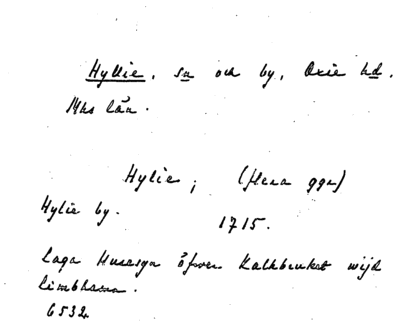 Hyllie, sn och by, Oxie hd.
Mhs län.
Hylie, (flera ggr)
Hylie by. 1715.
Laga Husesyn öfwer Kalkbruket wijd
Limbhamn.
6532